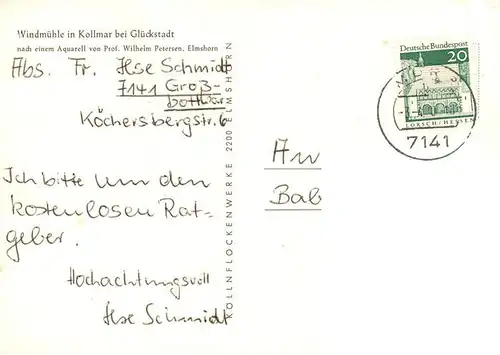 Windmühle in Kollmar bei Glückstadt
nach einem Aquarell von Prof. Wilhelm Petersen, Elmshorn
Abs. Fr. Ilse Schmidt
7141 Groß-
bottwar
Köchersbergstr. 6
Ich bitte um den
kostenlosen Rat-
geber.
Hochachtungsvoll
Ilse Schmidt
KÖLLNFLOCKENWERKE 2200 ELMSHORN
An
Bab
Deutsche Bundespost
20
LORSCH/HESSEN
7141